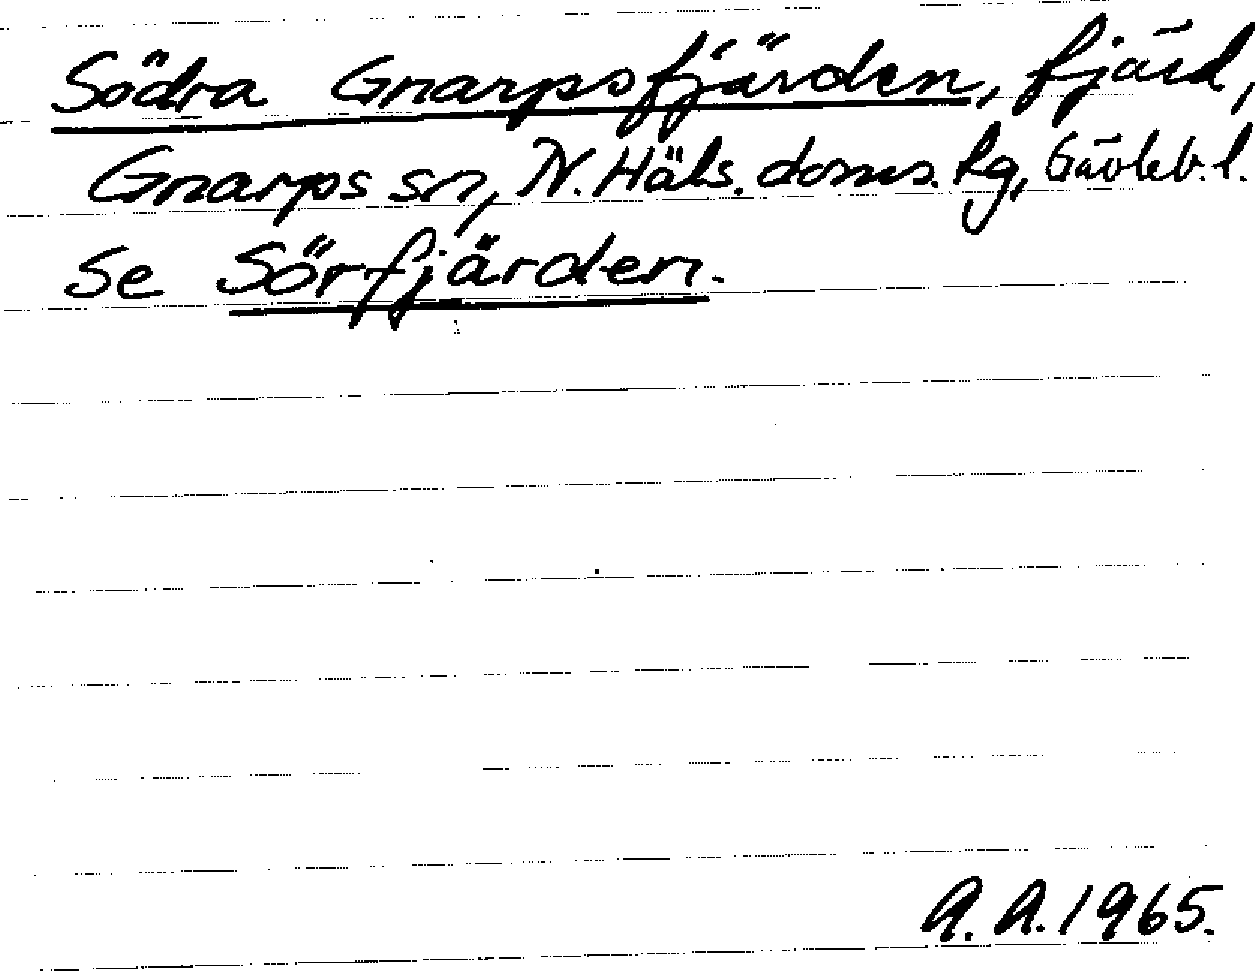 Södra Gnarpsfjärden, fjärd,
Gnarps sn, N. Häls. doms. hg, Gävleb. l.
Se Sörfjärden.
A. A. 1965.